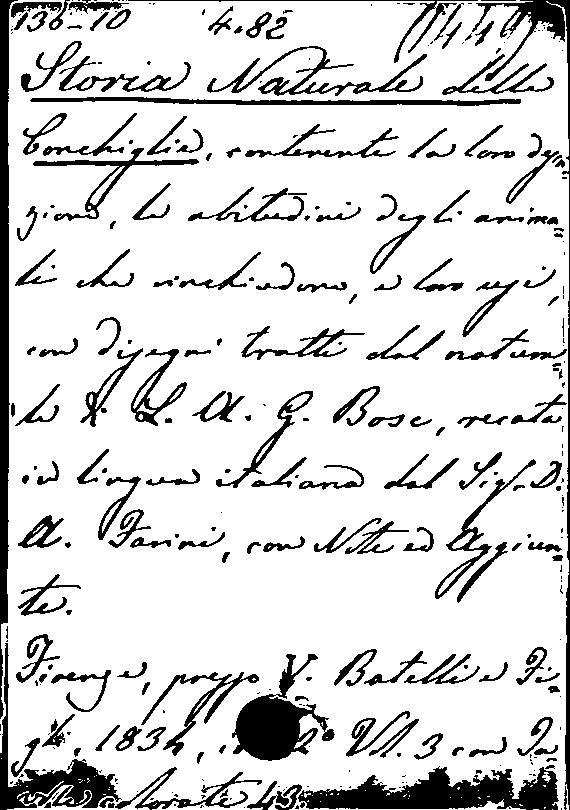 136-10 4.82 (1449)
Storia Naturale delle
Conchiglie, contenente la loro des¬
zione, le abitudini degli anima=
li che rinchiudono, e loro usi,
con disegni tratti dal natura=
le di L. A. G. Bosc, recata
in lingua italiana dal Sigr. D.
A. Farini, con Note ed Aggiun=
te.
Firenze, presso V. Batelli e Fi=
gli, 1834, in 12° Vol. 3 con Ta
vole colorate 43.